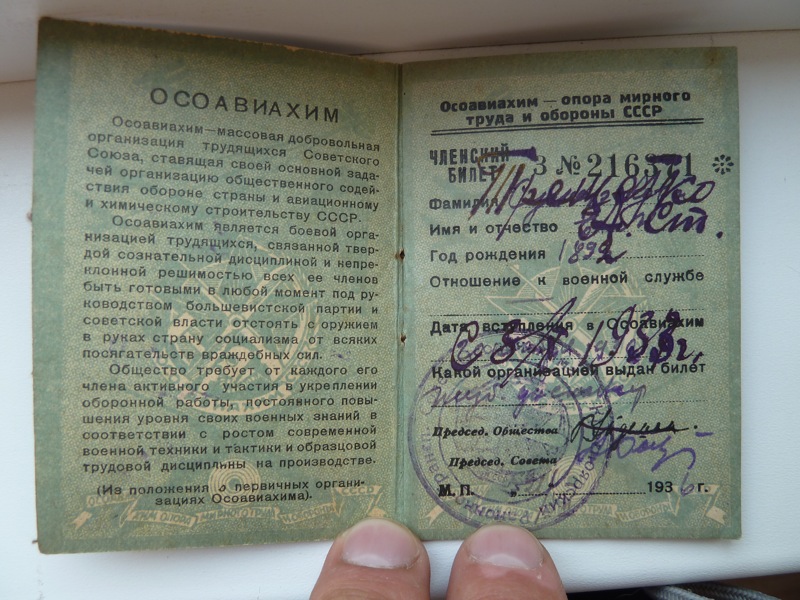 ОСОАВИАХИМ
Осоавиахим—массовая добровольная
организация трудящихся Советского
Союза, ставящая своей основной зада-
чей организацию общественного содей-
ствия обороне страны и авиационному
и химическому строительству СССР.
Осоавиахим является боевой орга-
низацией трудящихся, связанной твер-
дой сознательной дисциплиной и непре-
клонной решимостью всех ее членов
быть готовыми в любой момент под ру-
ководством большевистской партии и
советской власти отстоять с оружием
в руках страну социализма от всяких
посягательств враждебных сил.
Общество требует от каждого его
члена активного участия в укреплении
оборонной работы, постоянного повы-
шения уровня своих военных знаний в
соответствии с ростом современной
военной техники и тактики и образцовой
трудовой дисциплины на производстве.
(Из положения о первичных органи-
зациях Осоавиахима).
Осоавиахим — опора мирного
труда и обороны СССР
ЧЛЕНСКИЙ
БИЛЕТ З № 216571
Фамилия
Имя и отчество Ст.
Год рождения 1892
Отношение к военной службе
Дата вступления в Осоавиахим
1933г.
Какой организацией выдан билет
Председ. Общества
Председ. Совета
М. П. 1936 г.